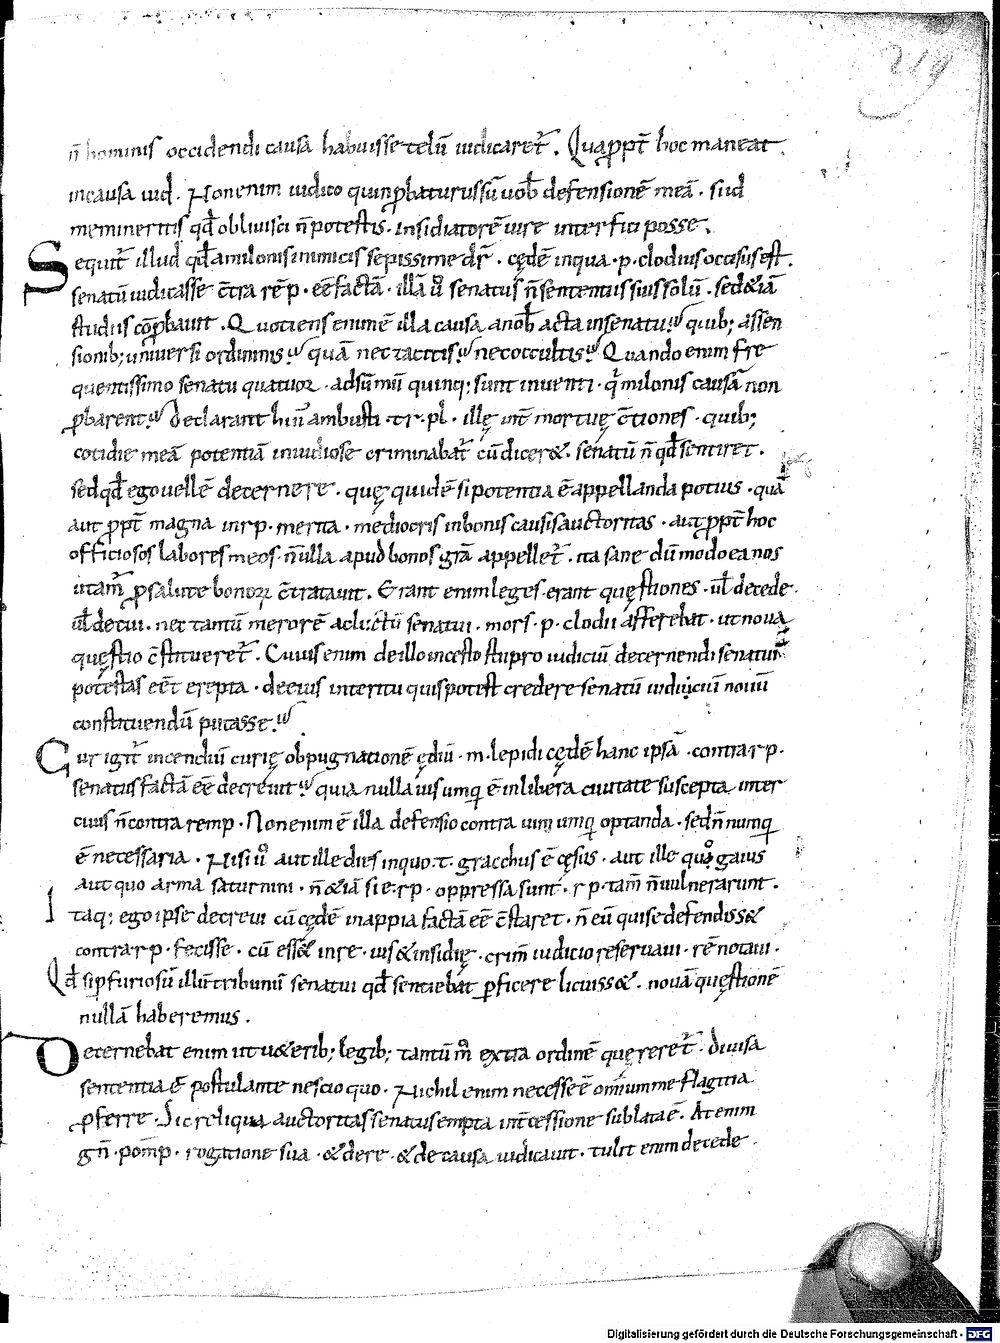 219
n̄ hominis occidendi causa habuisse telū iudicaret᷑. Quaꝓpt̄ hoc maneat
incausa iud. Nonenim iudico quinꝓbaturussū uob̄ defensionē meā. siid
memineritis qd̄ obliuisci n̄ potestis. insidiatorē iure interfici posse.
Sequit᷑ illud qd̄amilonisinimicis sępissime dr̄. cędē inqua .p. clodius occisus est.
senatū iudicasse c̄tra rē p. eē factā. illā ū senatus n̄ sententiis suis solū. sed &iā
studiis cōꝓbauit. Quotiens enim ē illa causa a nob̄ acta in senatu; quib; assen
sionib; uniuersi ordininis; quā nec tacitis; nec occultis; Quando enim fre
quentissimo senatu quatuor. adsūmū quinq; sunt inuenti. q̄ milonis causā non
ꝓbarent; Declarant hui᷑ ambusti .tr. pl. illę int̄ mortuę c̄tiones. quib;
cotidie meā potentiā inuidiose criminabat᷑ cū dicer&. senatū n̄ qd̄ sentiret.
sed qd̄ ego uellē decernere. quę quidē si potentia ē appellanda potius. quā
aut ꝓpt̄ magna inrp. merita. mediocris inbonis causis auctoritas. aut ꝓpt̄ hoc
officiosos labores meos. n̄ulla apud bonos grā appellet᷑. ita sane dū modo ea nos
utam᷑ ꝓ salute bonoꝝ c̄tra tauit. Erant enim leges. erant quęstiones. ul̄ decede
ul̄ de cui. nec tantū merorē ac luctū senatui. mors .p. clodii afferebat. ut noua
quęstio c̄stitueret᷑. Cuius enim deillo incesto stupro iudiciū decernendi senatui
potestas eēt erepta. deeius interitu quis potest credere senatū iudiciū nouū
constituendū putasse;
Cur igit᷑ incendiū curię obpugnationē ędiū .m. lepidi cędē hanc ipsā. contra rp.
senatus factā eē decreuit; quia nulla uis umq ē in libera ciuitate suscepta inter
ciuis n̄ contra remp. Nonenim ē illa defensio contra uim umq optanda. sed n̄ numq
ē necessaria. Nisi ū aut ille dies in quo .t. gracchus ē cęsus. aut ille quo gaius
aut quo arma saturnini. n̄ &iā si e.r.p. oppressa sunt. rp. tam̄ n̄ uulnerarunt.
Itaq; ego ipse decreui cū cędē in appia factā eē c̄staret. n̄ eū qui se defendiss&
contra rp. fecisse. cū ess& inre. uis & insidię. crim̄ iudicio reseruaui. rē notaui.
Qd̄ siꝑ furiosū illū tribunū senatui qd̄ sentiebat ꝑficere licuiss&. nouā quęstionē
nullā haberemus.
Decernebat enim ut u&erib; legib; tantū m̄ extra ordinē quęreret᷑. diuisa
sententia ē postulante nescio quo. Nichil enim necesse ē omīum me flagitia
ꝓferre. Sic reliqua auctoritas senatus empta int̄cessione sublata ē. At enim
gn̄. pomp̄. rogatione sua. & dere. & de causa iudicauit. tulit enim de cede
Digitalisierung gefördert durch die Deutsche Forschungsgemeinschaft - DFG